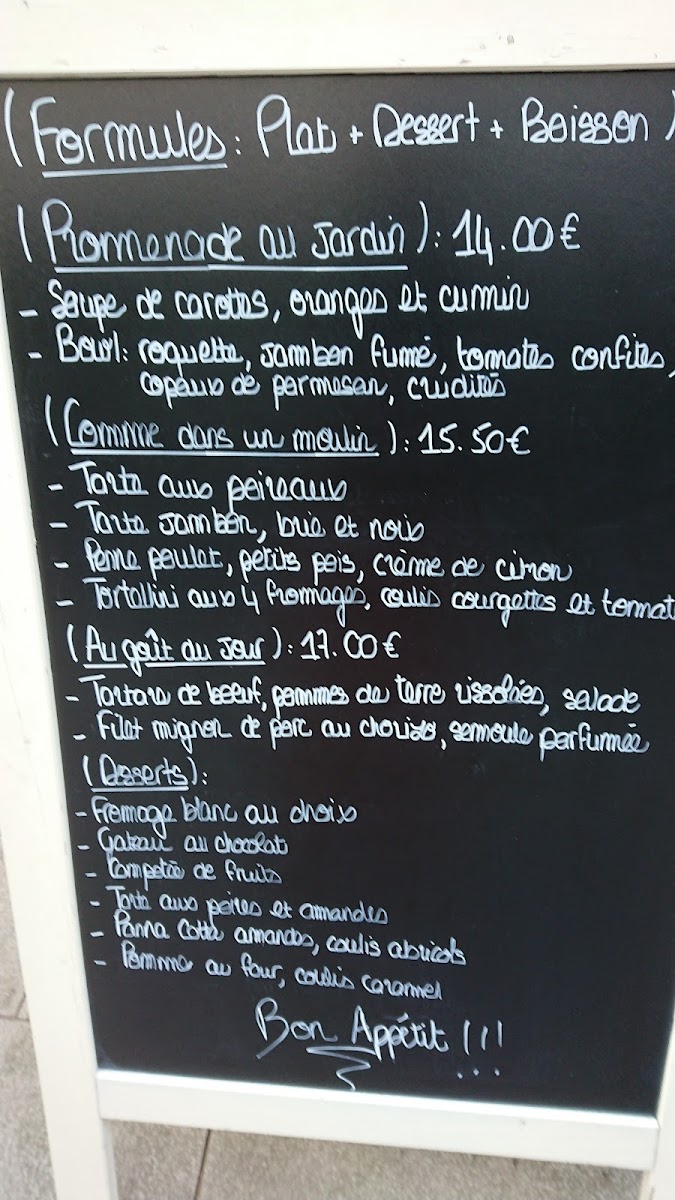 (Formules: Plat + Dessert + Boisson)
(Promenade au Jardin): 14.00€
- Soupe de carottes, oranges et cumin
- Bowl: roquette, jambon fumé, tomates confites,
copeaux de parmesan, crudités
(Comme dans un moulin): 15.50€
- Tarte aux poireaux
- Tarte jambon, brie et noix
- Penne poulet, petits pois, crème de citron
- Tortellini aux 4 fromages, coulis courgettes et tomat
(Au goût du Jour): 17.00€
- Tartare de boeuf, pommes de terre rissolées, salade
- Filet mignon de porc au chorizo, semoule parfumée
(Desserts):
- Fromage blanc au choix
- Gateau au chocolat
- Compotée de fruits
- Tarte aux poires et amandes
- Panna Cotta amandes, coulis abricots
- Pomme au four, coulis caramel
Bon Appétit !!!